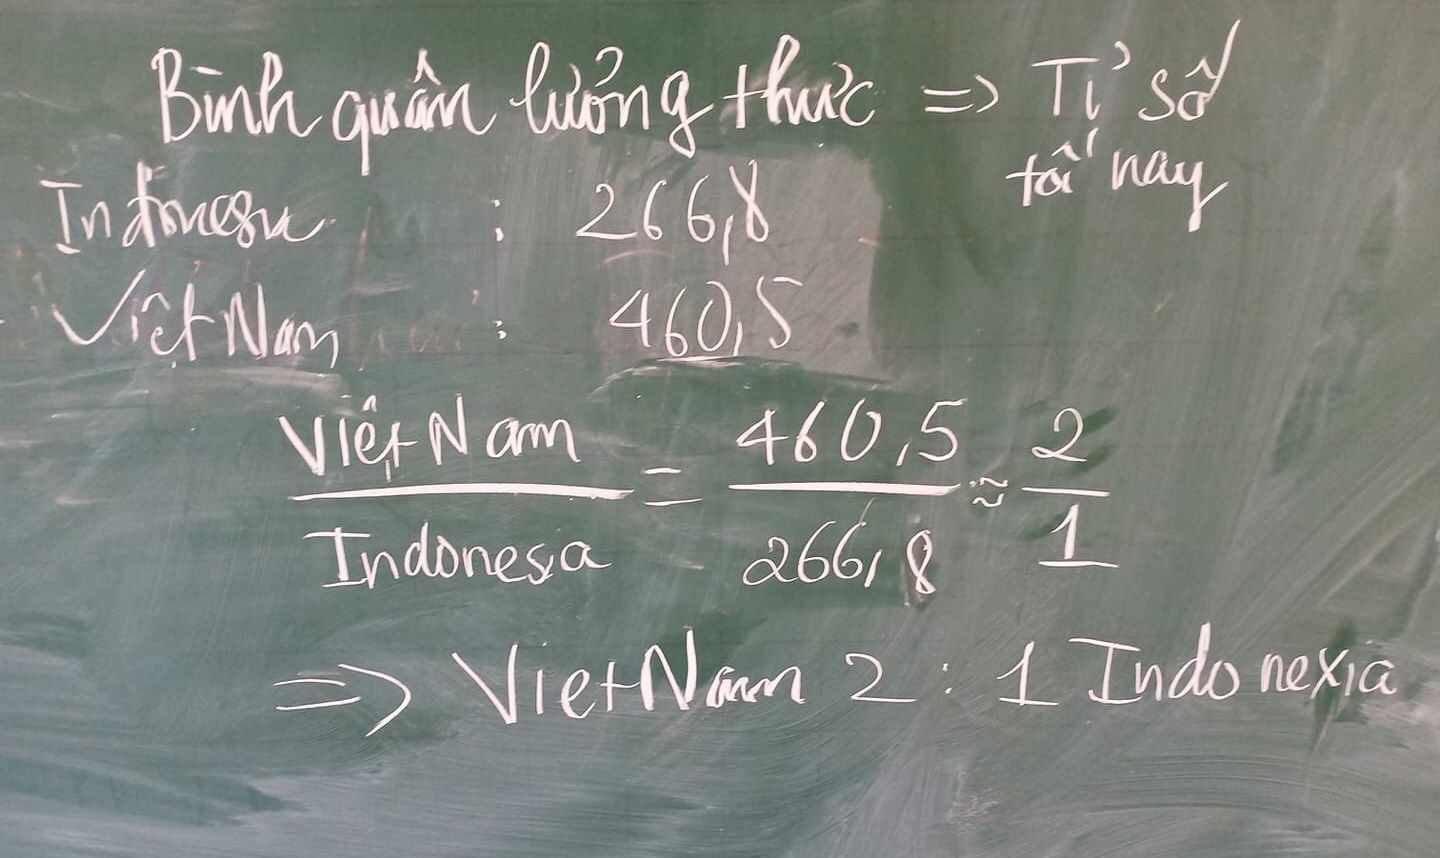 Bình quân lưởng thực => Tỉ số
tối nay
Indonesia : 266,8
Việt Nam : 460,5
Việt Nam = 460,5 ≈ 2
Indonesia 266,8 1
=> Việt Nam 2 : 1 Indonexia